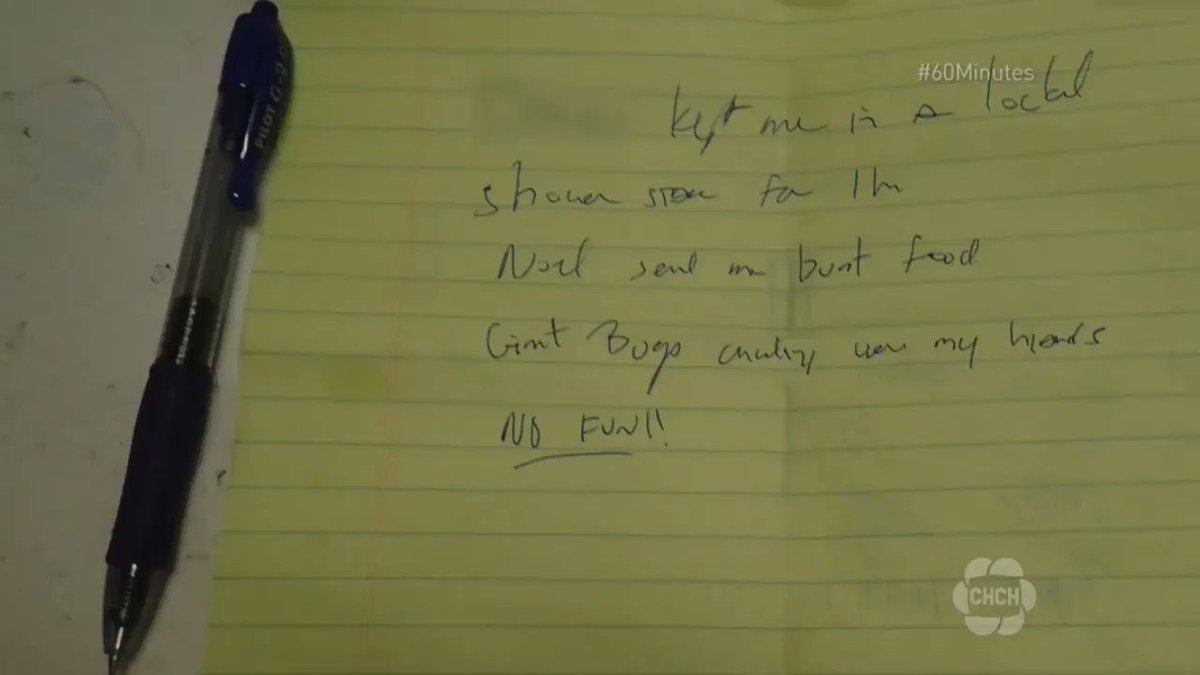 #60Minutes
kept me in a locked
shower stall for 1 hr
Noel sent me burnt food
Giant Bugs crawling over my hands
NO FUN!!
PILOT G-2
CHCH